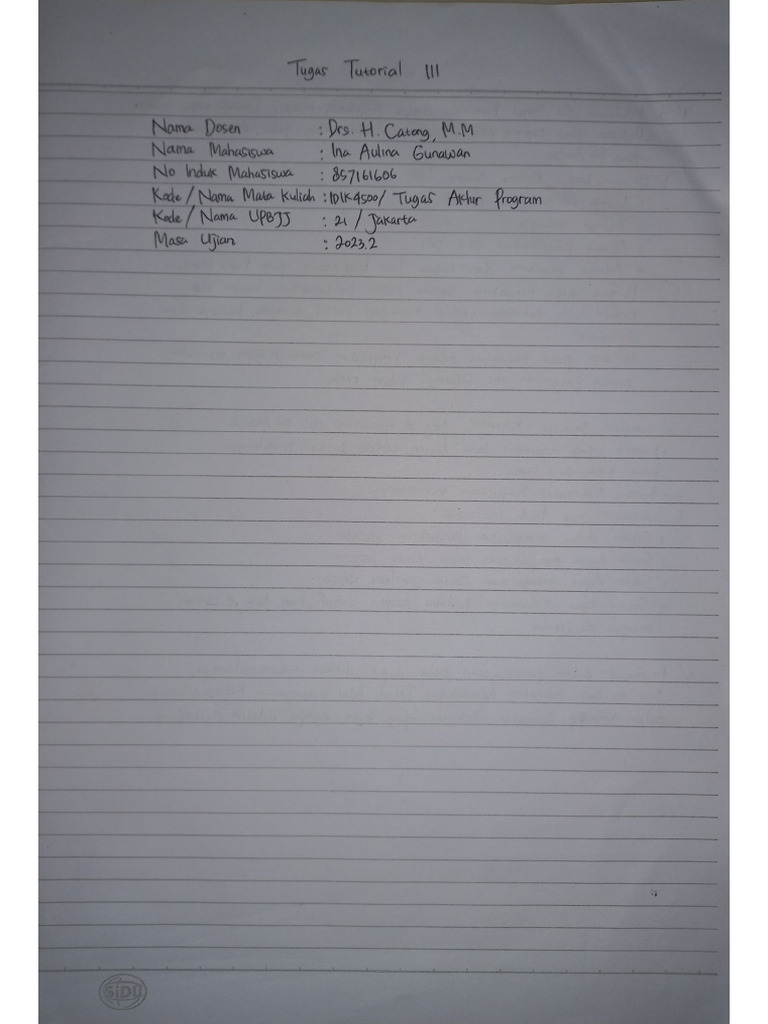 Tugas Tutorial III
Nama Dosen : Drs. H. Catong, M.M
Nama Mahasiswa : Ina Aulina Gunawan
No Induk Mahasiswa : 857161606
Kode / Nama Mata Kuliah : IDIK4500 / Tugas Akhir Program
Kode / Nama UPBJJ : 21 / Jakarta
Masa Ujian : 2023.2
SiDU